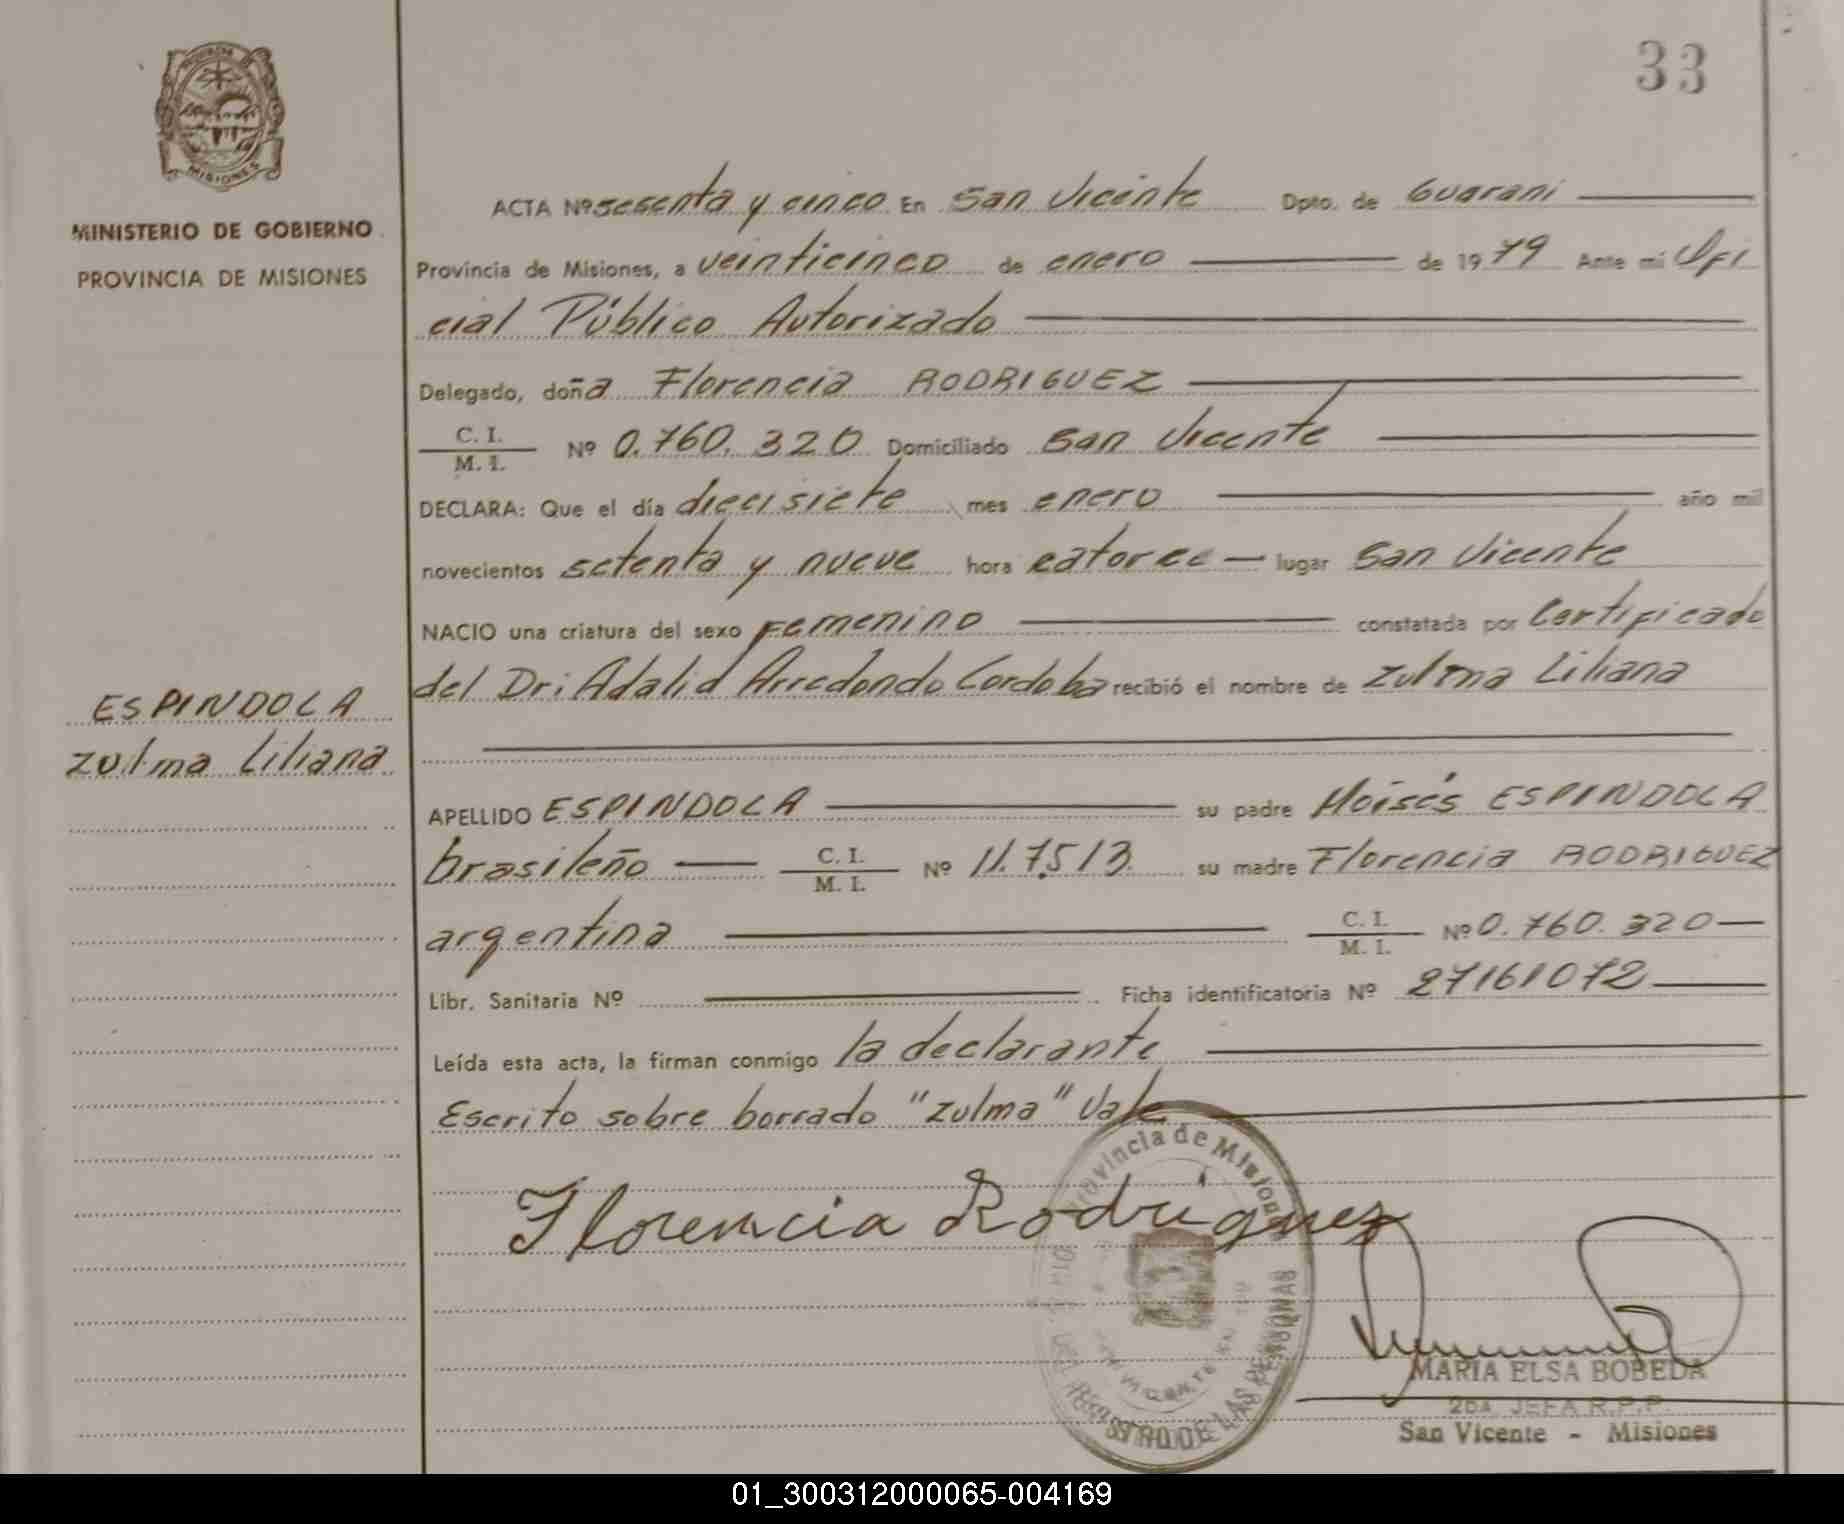 33
PROVINCIA DE
MISIONES
MINISTERIO DE GOBIERNO
PROVINCIA DE MISIONES
ESPINDOLA
Zulma Liliana
ACTA Nº sesenta y cinco En San Vicente Dpto. de Guarani
Provincia de Misiones, a veinticinco de enero de 1979 Ante mi Ofi
cial Público Autorizado
Delegado, doña Florencia RODRIGUEZ
C. I.
M. I. Nº 0.760.320 Domiciliado San Vicente
DECLARA: Que el día diecisiete mes enero año mil
novecientos setenta y nueve hora catorce lugar San Vicente
NACIO una criatura del sexo Femenino constatada por Certificado
del Dr: Adalid Arredondo Cordoba recibió el nombre de Zulma Liliana
APELLIDO ESPINDOLA su padre Moisés ESPINDOLA
brasileño C. I.
M. I. Nº 11.7513. su madre Florencia RODRIGUEZ
argentina C. I.
M. I. Nº 0.760.320
Libr. Sanitaria Nº Ficha identificatoria Nº 27161072
Leída esta acta, la firman conmigo la declarante
Escrito sobre borrado "Zulma" Vale
Florencia Rodriguez
Provincia de Misiones
SAN VICENTE
REGISTRO DE LAS PERSONAS
MARIA ELSA BOBEDA
2DA. JEFA R.P.P.
San Vicente - Misiones
01_300312000065-004169